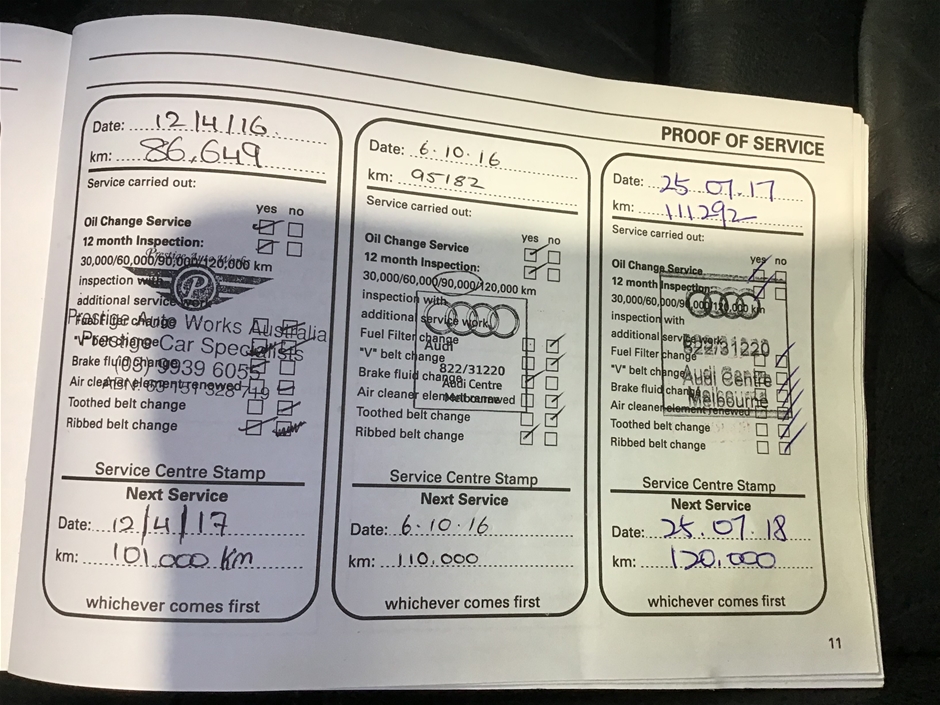 PROOF OF SERVICE
Date: 12/4/16
km: 86,649
Service carried out:
yes no
Oil Change Service
12 month Inspection:
30,000/60,000/90,000/120,000 km
inspection with
additional service work
Fuel Filter change
"V" belt change
Brake fluid change
Air cleaner element renewed
Toothed belt change
Ribbed belt change
Prestige Auto Works
P
Prestige Auto Works Australia
Prestige Car Specialists
(03) 9939 6055
Service Centre Stamp
Next Service
Date: 12/4/17
km: 101,000 km
whichever comes first
Date: 6.10.16
km: 95182
Service carried out:
yes no
Oil Change Service
12 month Inspection:
30,000/60,000/90,000/120,000 km
inspection with
additional service work
Fuel Filter change
"V" belt change
Brake fluid change
Air cleaner element renewed
Toothed belt change
Ribbed belt change
Audi
822/31220
Audi Centre
Melbourne
Service Centre Stamp
Next Service
Date: 6.10.16
km: 110,000
whichever comes first
Date: 25.07.17
km: 111292
Service carried out:
yes no
Oil Change Service
12 month Inspection:
30,000/60,000/90,000/120,000 km
inspection with
additional service work
Fuel Filter change
"V" belt change
Brake fluid change
Air cleaner element renewed
Toothed belt change
Ribbed belt change
822/31220
Audi Centre
Melbourne
Service Centre Stamp
Next Service
Date: 25.07.18
km: 120,000
whichever comes first
11